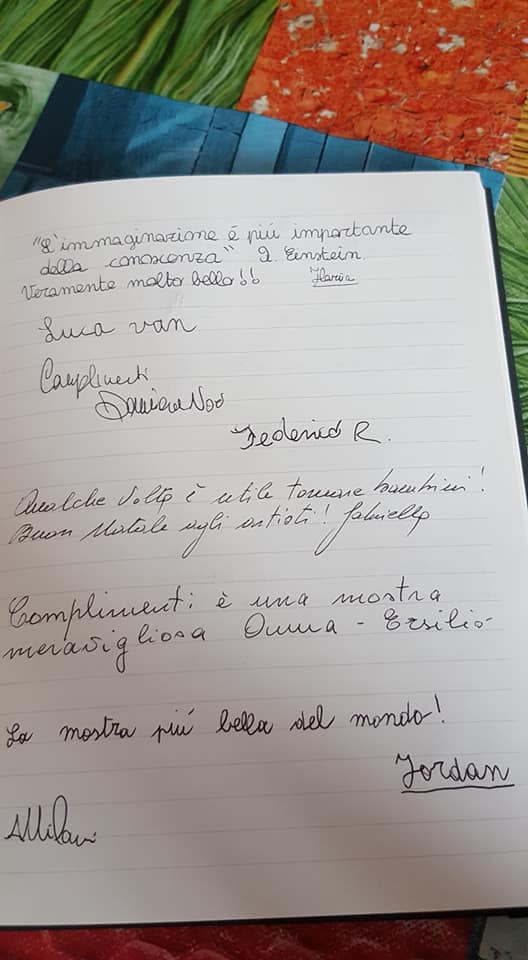 "L'immaginazione é più importante
della conoscenza" A. Einstein.
Veramente molto bello!! Ilaria
Luca van
Complimenti
Federico R.
Qualche volta è utile tornare bambini!
Buon Natale agli artisti! Gabriella
Complimenti è una mostra
meravigliosa - Ersilio
La mostra più bella del mondo!
Jordan